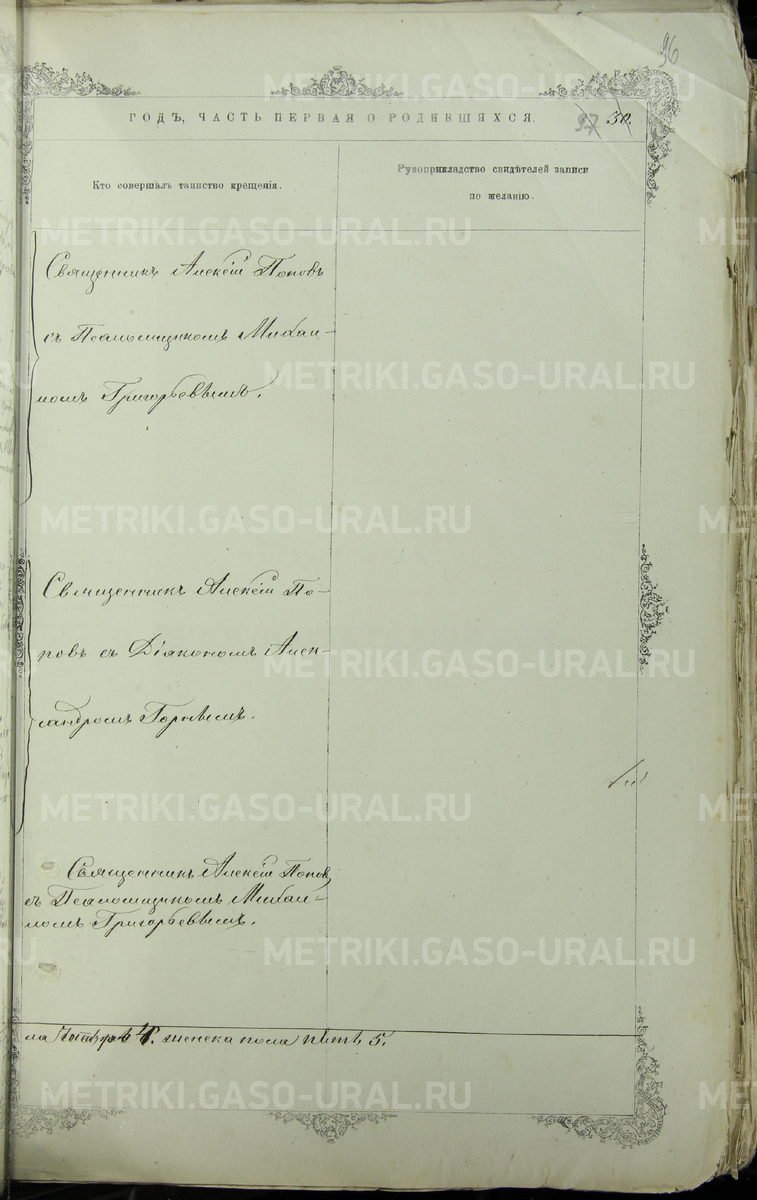 96
ГОДЪ, ЧАСТЬ ПЕРВАЯ О РОДИВШИХСЯ.
97 50.
Кто совершалъ таинство крещенія.
Рукоприкладство свидѣтелей записи
по желанію.
Священникъ Алексій Поповъ
съ Псаломщикомъ Михаи-
ломъ Григорьевымъ.
Священникъ Алексій По-
повъ съ Діакономъ Алек-
сандромъ
Священникъ Алексій Поповъ
съ Псаломщикомъ Михаи-
ломъ Григорьевымъ.
ла 4. женска пола пять 5.
METRIKI.GASO-URAL.RU